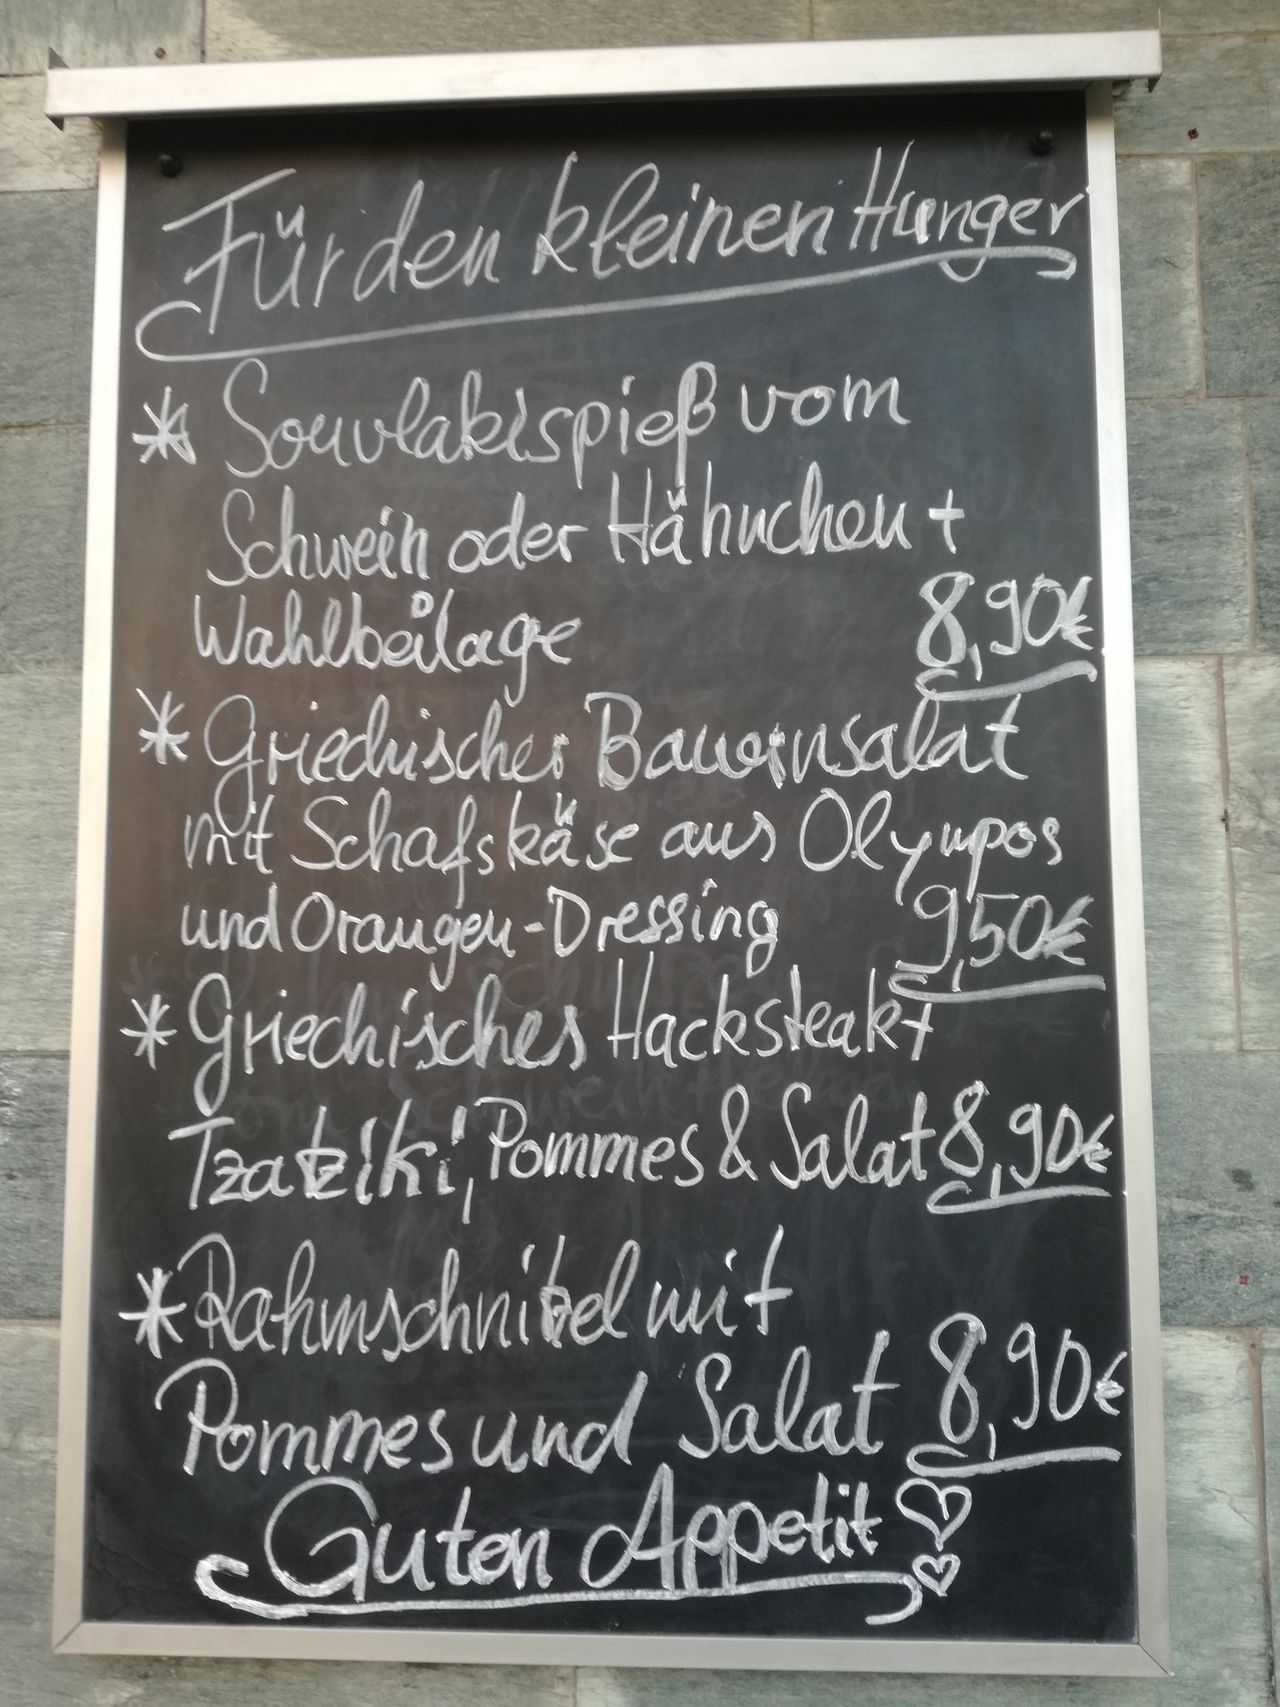 Für den kleinen Hunger
* Souvlakispieß vom
Schwein oder Hähnchen +
Wahlbeilage 8,90€
* Griechischer Bauernsalat
mit Schafskäse aus Olympos
und Orangen-Dressing 9,50€
* Griechisches Hacksteak +
Tzatziki, Pommes & Salat 8,90€
* Rahmschnitzel mit
Pommes und Salat 8,90€
Guten Appetit